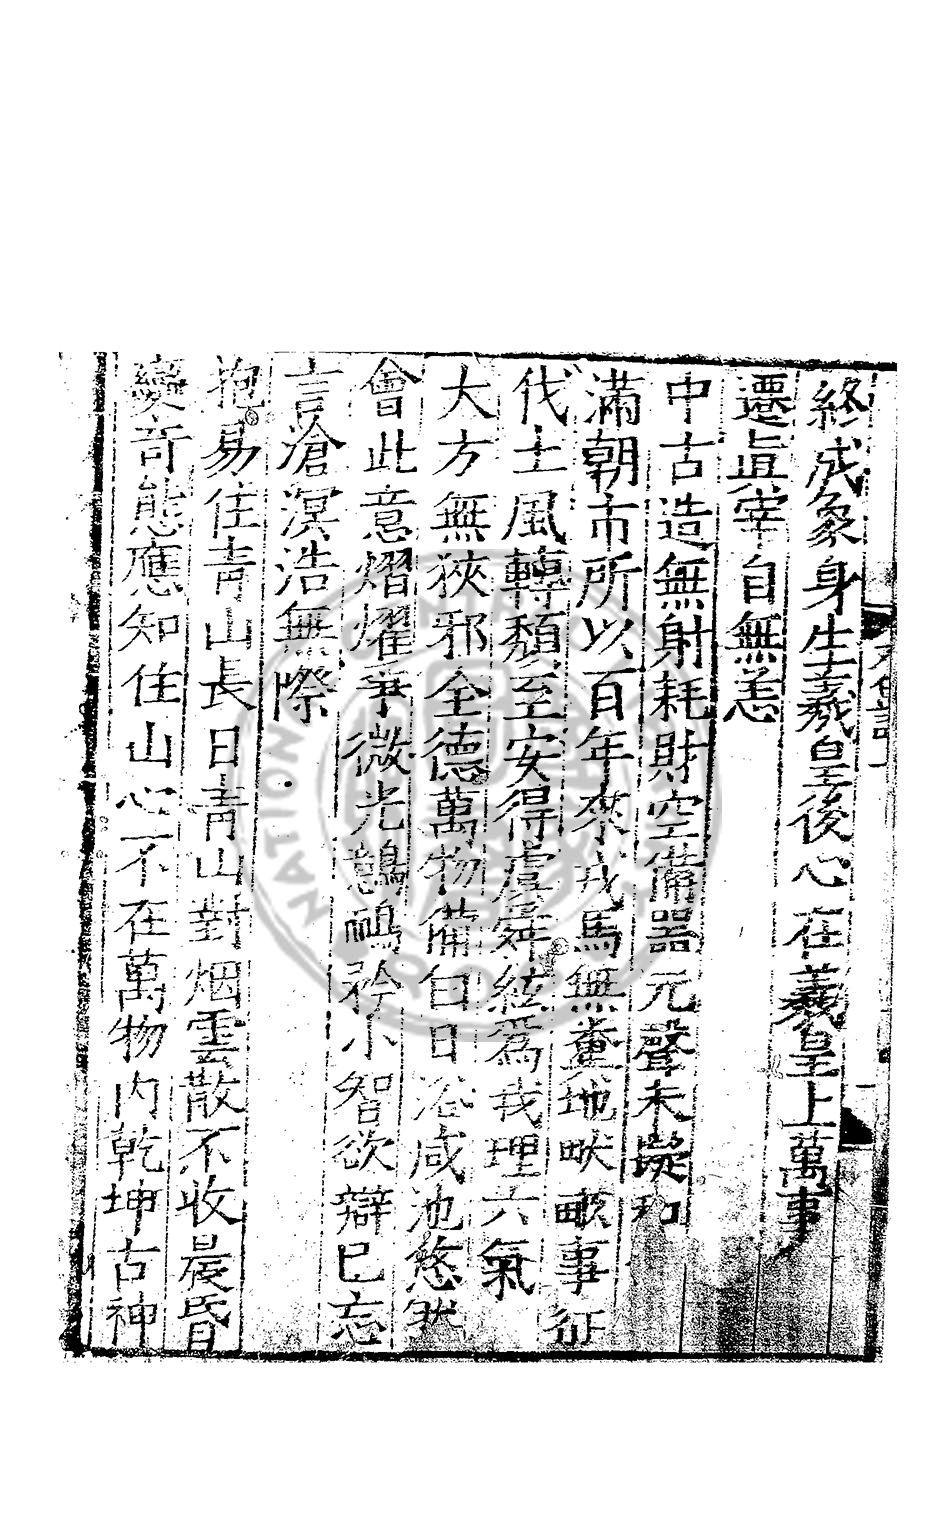 終成象身生羲皇後心在羲皇上萬事
遷眞宰自無恙
中古造無射耗財空備器元聲未凝和
滿朝市所以百年來戎馬無糞地畎畝事征
伐士風轉頹至安得虞舜絃爲我理六氣
大方無狹邪全德萬物備白日浴咸池悠然
會此意熠燿爭微光鶺鴒矜小智欲辯已忘
言滄溟浩無際
抱易住青山長日青山對烟雲散不收晨昏
變奇態應知住山心不在萬物内乾坤古神
NATION CENTRAL